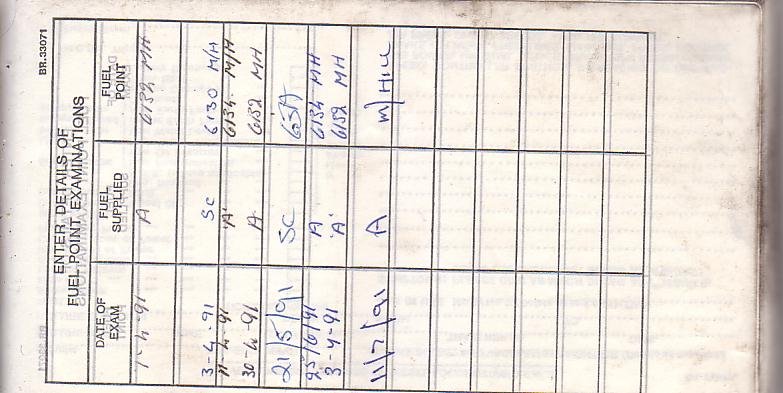 BR.33071
ENTER DETAILS OF
FUEL POINT EXAMINATIONS
DATE OF EXAM FUEL SUPPLIED FUEL POINT
1-4-91 A 6132 MH
3-4-91 SC 6130 M/H
11-4-91 'A' 6134 M/H
30-4-91 A 6132 MH
21/5/91 SC 63A
25/6/91 A 6134 MH
3-7-91 'A' 6132 MH
11/7/91 A M/HILL